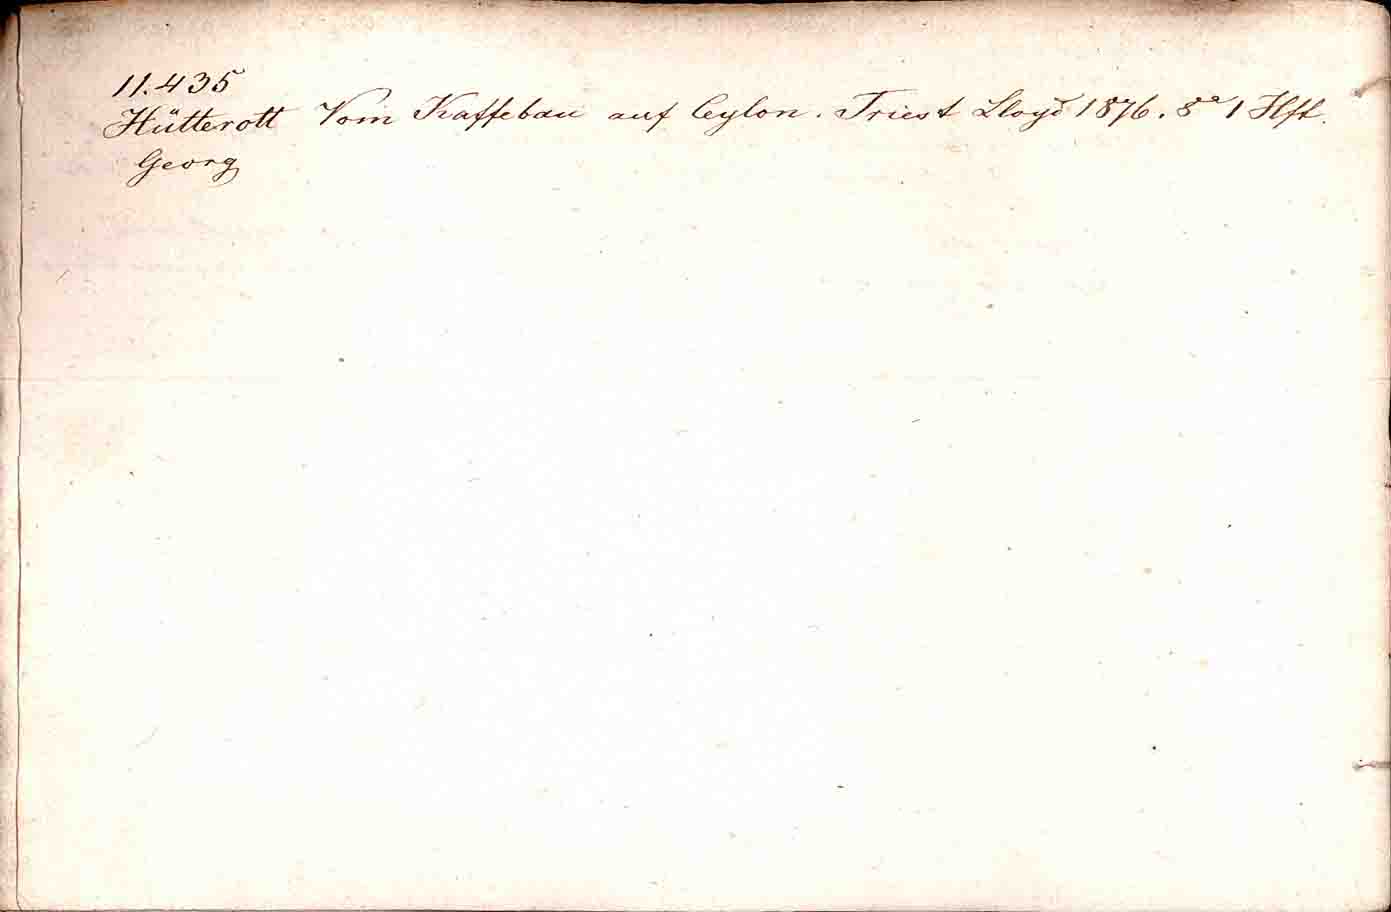 11.435
Hütterott Vom Kaffebau auf Ceylon. Triest Lloyd 1876. 8° 1 Hft.
Georg